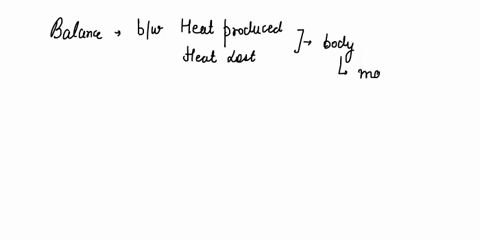 Balance → b/w Heat produced
Heat Lost ] → body
↳ mo